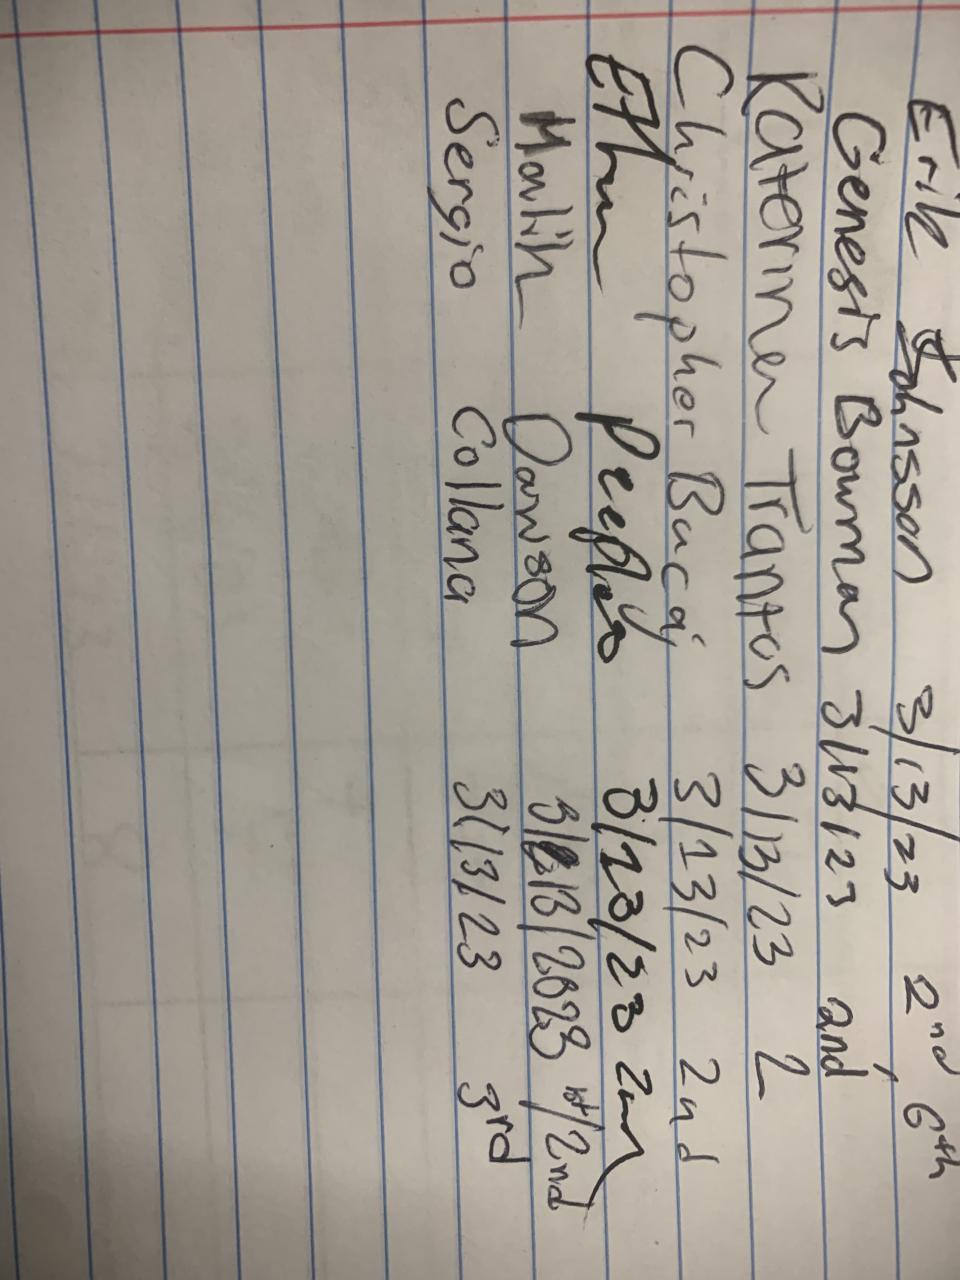 Erik Johnsson 3/13/23 2nd, 6th
Genesis Bowman 3/13/23 2nd
Katerina Trantos 3/13/23 2
Christopher Bucaj 3/13/23 2nd
Ethan 3/13/23 2nd
Malik Dawson 3/13/2023 1st/2nd
Sergio Collana 3/13/23 3rd